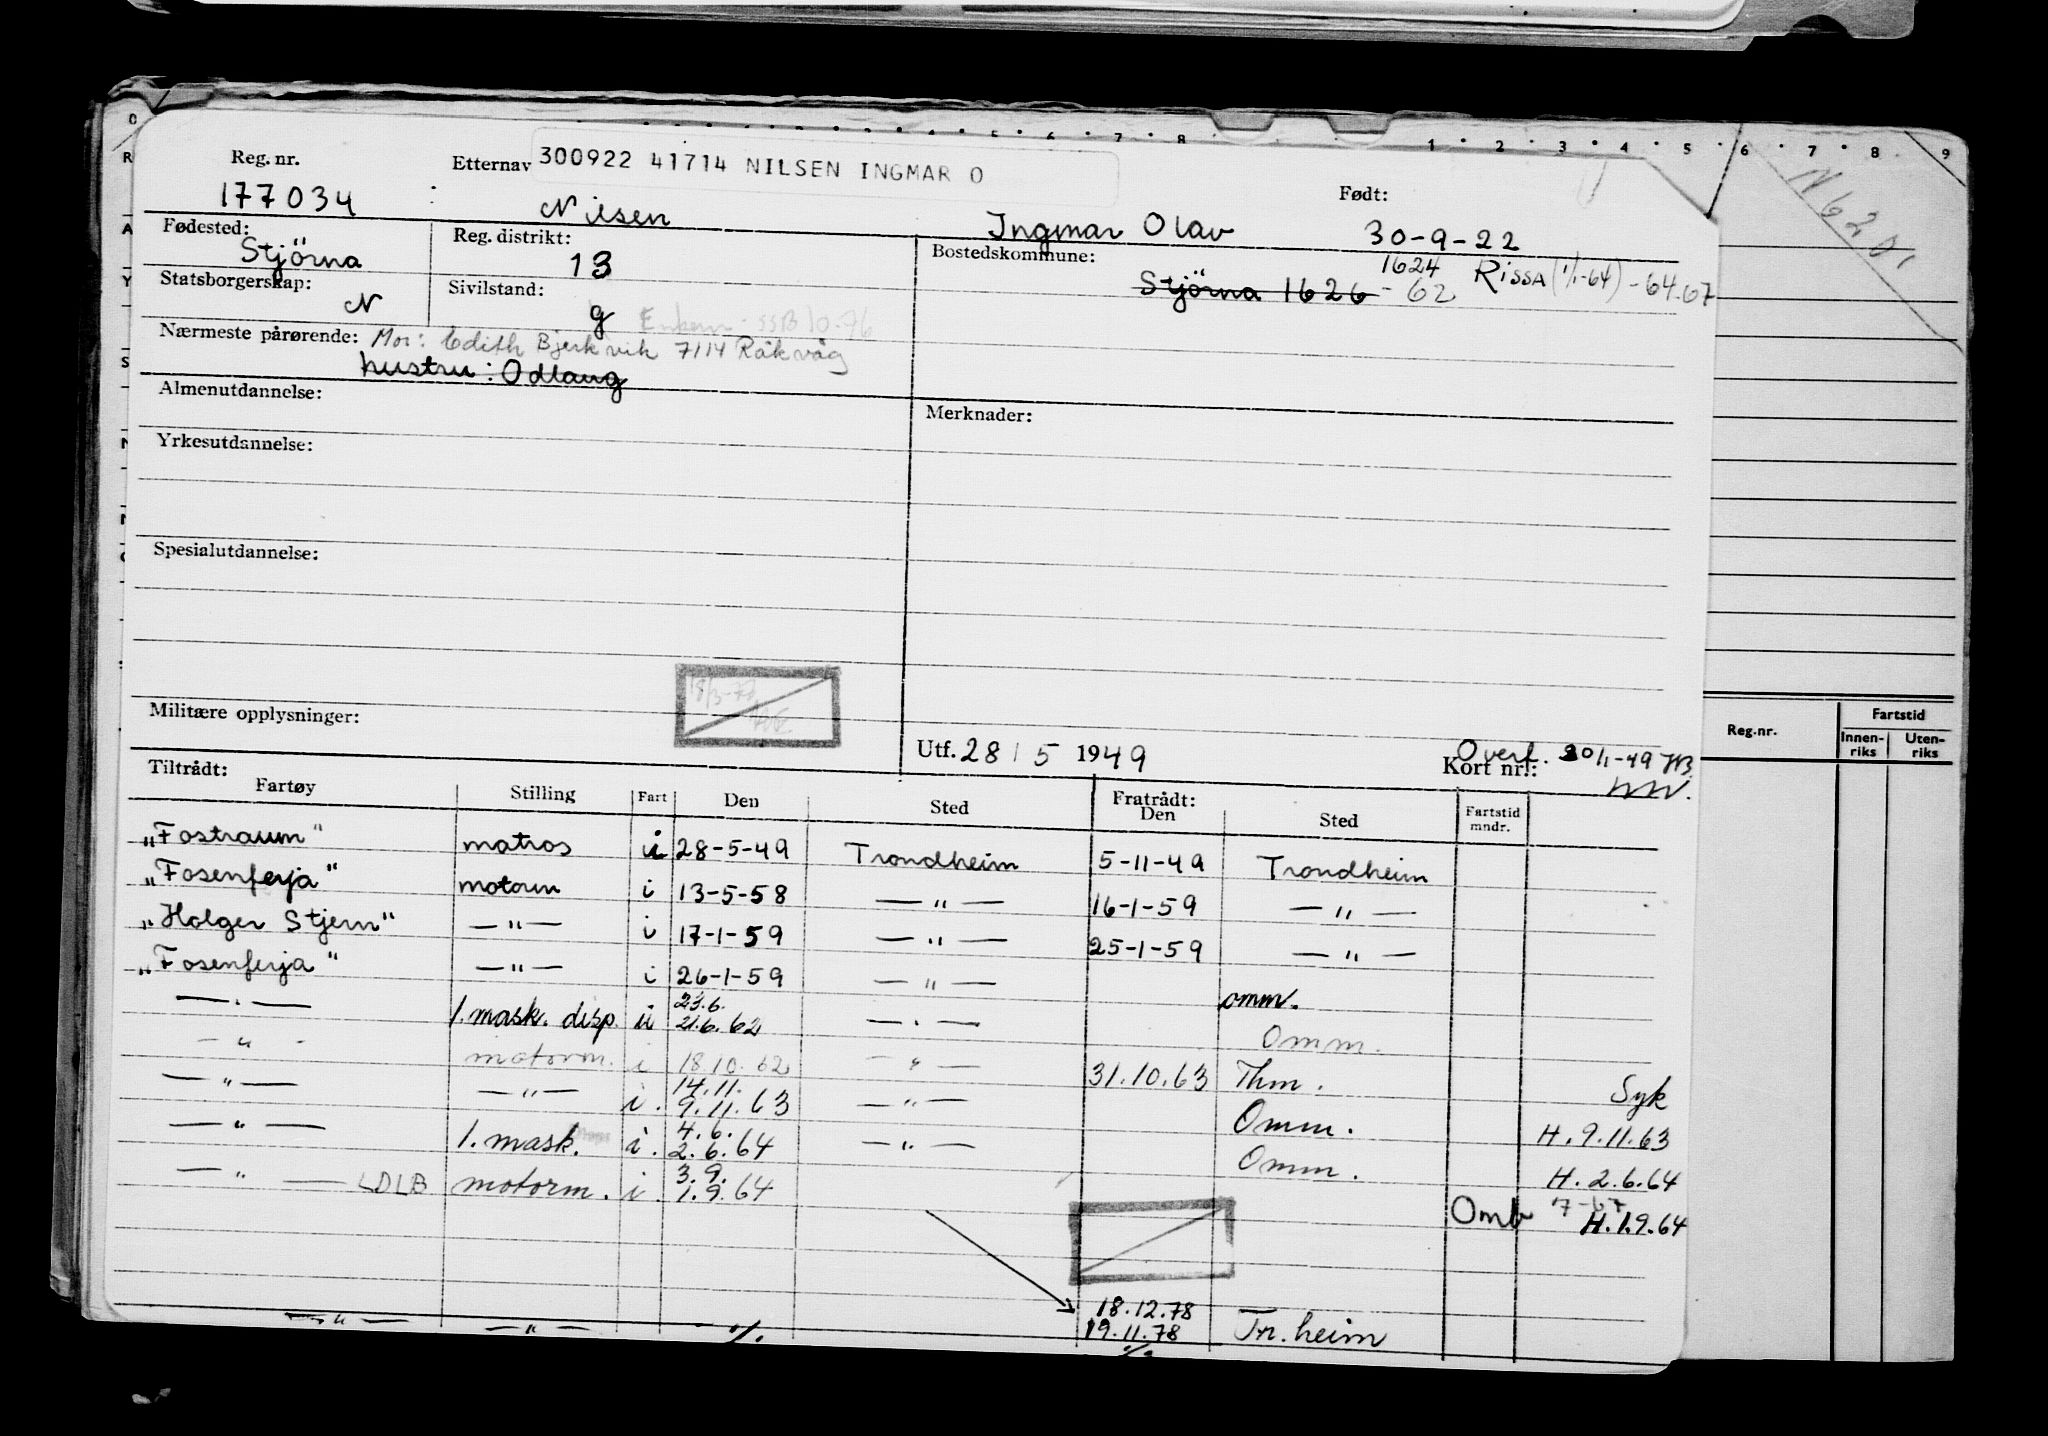 Reg. nr. Etternav 300922 41714 NILSEN INGMAR O Født:
177034 Nilsen Ingmar Olav 30-9-22
Fødested: Stjörna Reg. distrikt: 13 Bostedskommune: Stjörna 1626 - 62 1624 Rissa (1/1-64) - 64.67
Statsborgerskap: N Sivilstand: g
Enkem. SSB 10.76
Nærmeste pårørende: Mor: Edith Bjerkvik 7114 Råkvåg
hustru: Odlaug
Almenutdannelse: Merknader:
Yrkesutdannelse:
Spesialutdannelse:
18/3-77
Militære opplysninger:
Utf. 28/5 1949 Kort nr.: Overf. 30/1-49
Tiltrådt: Fratrådt:
Fartøy Stilling Fart Den Sted Den Sted Fartstid mndr.
"Fostraum" matros u 28-5-49 Trondheim 5-11-49 Trondheim
"Fosenferja" motorm i 13-5-58 —"— 16-1-59 —"—
"Holger Stjern" —"— i 17-1-59 —"— 25-1-59 —"—
"Fosenferja" —"— i 26-1-59 —"— omm.
—"— 1. mask. disp. ii 23.6. 21.6.62 —"— Omm.
—"— motorm. i 18.10.62 —"— 31.10.63 Thm. Syk
—"— —"— i. 14.11. 9.11.63 —"— Omm. H. 9.11.63
—"— 1. mask. i. 4.6. 2.6.64 —"— Omm. H. 2.6.64
—"— LDLB motorm. i. 3.9. 1.9.64 Omb 7-67 H. 1.9.64
18.12.78
19.11.78 Tr.heim
—"— —"— %. %.
Reg.nr. Fartstid
Innen-riks Uten-riks